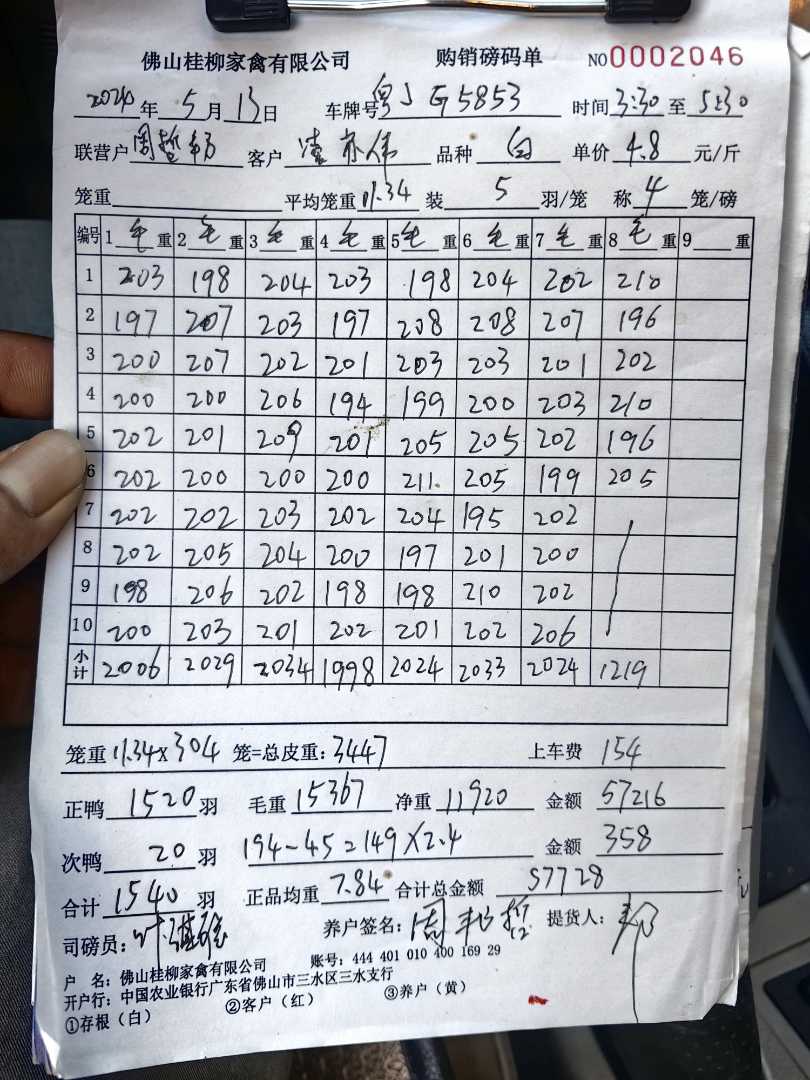 佛山桂柳家禽有限公司 购销磅码单 NO0002046
2024年5月13日 车牌号粤J G5853 时间3:30至5:30
联营户 客户 品种白 单价4.8元/斤
笼重 平均笼重11.34 装5羽/笼 称4笼/磅
编号 1毛重 2毛重 3毛重 4毛重 5毛重 6毛重 7毛重 8毛重 9重
1 203 198 204 203 198 204 202 210
2 197 207 203 197 208 208 207 196
3 200 207 202 201 203 203 201 202
4 200 200 206 194 199 200 203 210
5 202 201 209 201 205 205 202 196
6 202 200 200 200 211 205 199 205
7 202 202 203 202 204 195 202
8 202 205 204 200 197 201 200
9 198 206 202 198 198 210 202
10 200 203 201 202 201 202 206
小计 2006 2029 2034 1998 2024 2033 2024 1219
笼重11.34×304笼=总皮重:3447 上车费154
正鸭1520羽 毛重15367 净重11920 金额57216
次鸭20羽 194-45=149×2.4 金额358
合计1540羽 正品均重7.84 合计总金额57728
司磅员: 养户签名:周 提货人:
户 名:佛山桂柳家禽有限公司 账号:444 401 010 400 169 29
开户行:中国农业银行广东省佛山市三水区三水支行
①存根(白) ②客户(红) ③养户(黄)